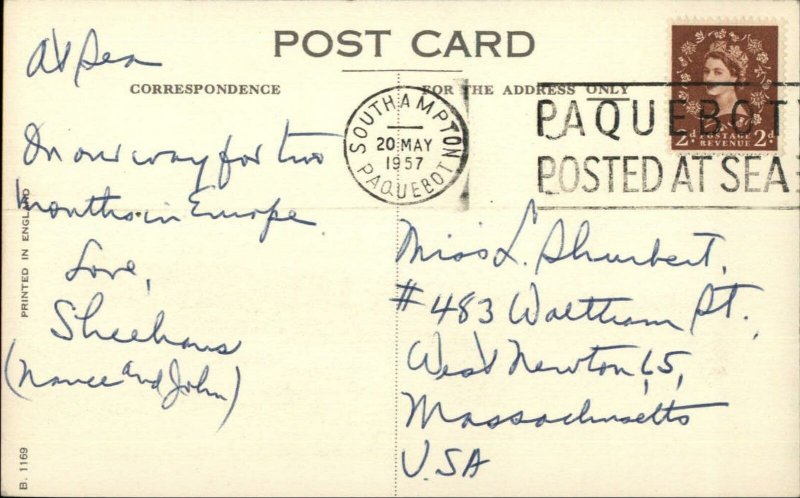 POST CARD
CORRESPONDENCE
FOR THE ADDRESS ONLY
At Sea
On our way for two
months in Europe.
Love,
Sheehans
(Nance and John)
PRINTED IN ENGLAND
B. 1169
SOUTHAMPTON
20 MAY
1957
PAQUEBOT
PAQUEBOT
POSTED AT SEA
2d POSTAGE 2d
REVENUE
Miss L. Shurbert,
#483 Waltham St.,
West Newton 65,
Massachusetts
USA